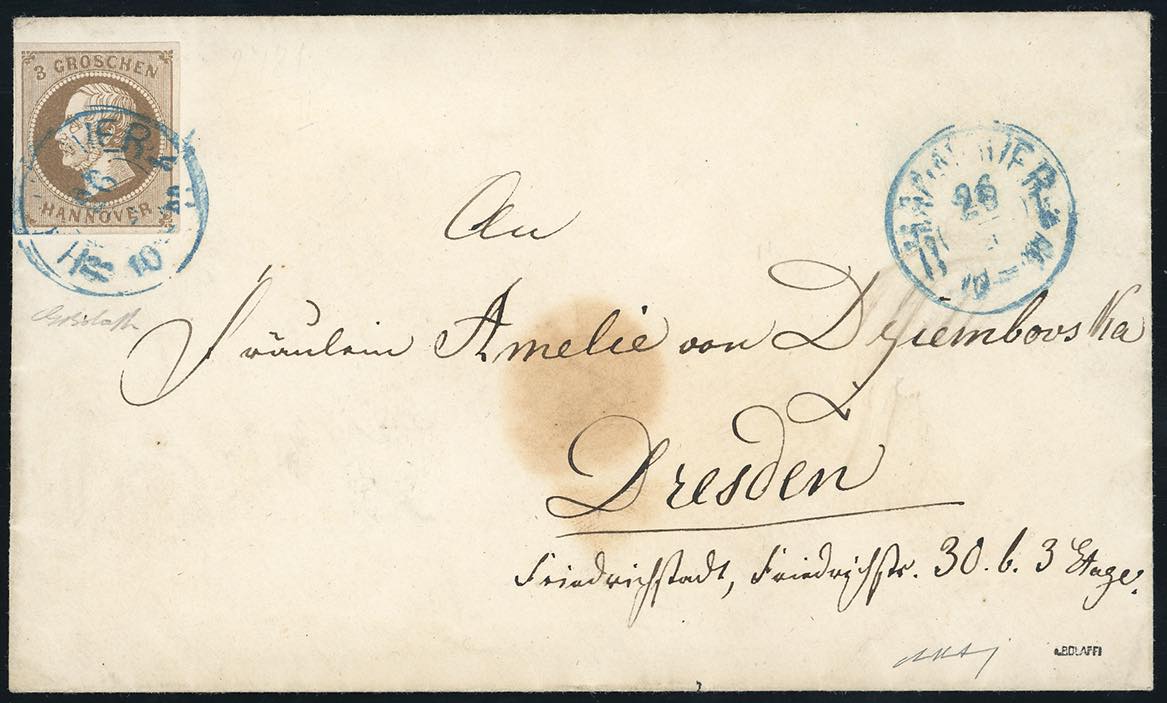 3 GROSCHEN
HANNOVER
26
An
Fräulein Amelie von Dziembovska
Dresden
Friedrichstadt, Friedrichstr. 30. b. 3 Etage.
A.BOLAFFI